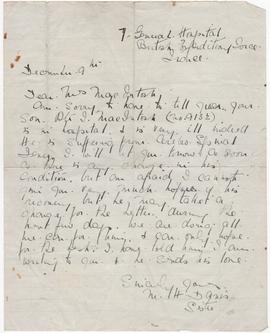 7. General Hospital
British Expeditionary Force
France
December 9th
Dear Mrs MacIntosh
Am sorry to have to tell you, your
Son. Pte J. MacIntosh
is in hospital, & is very ill indeed
He is suffering from Cerebro Spinal
Fever. I will let you know as soon
as there is any change in his
Condition, but am afraid I cannot
give you very much hopes of his
recovery, but he may take a
change for the better, during the
next few days. We are doing all
we can for him, & can only hope
for the best. I have told him I am
writing to you & he sends his love.
Sincerely Yours
Sister